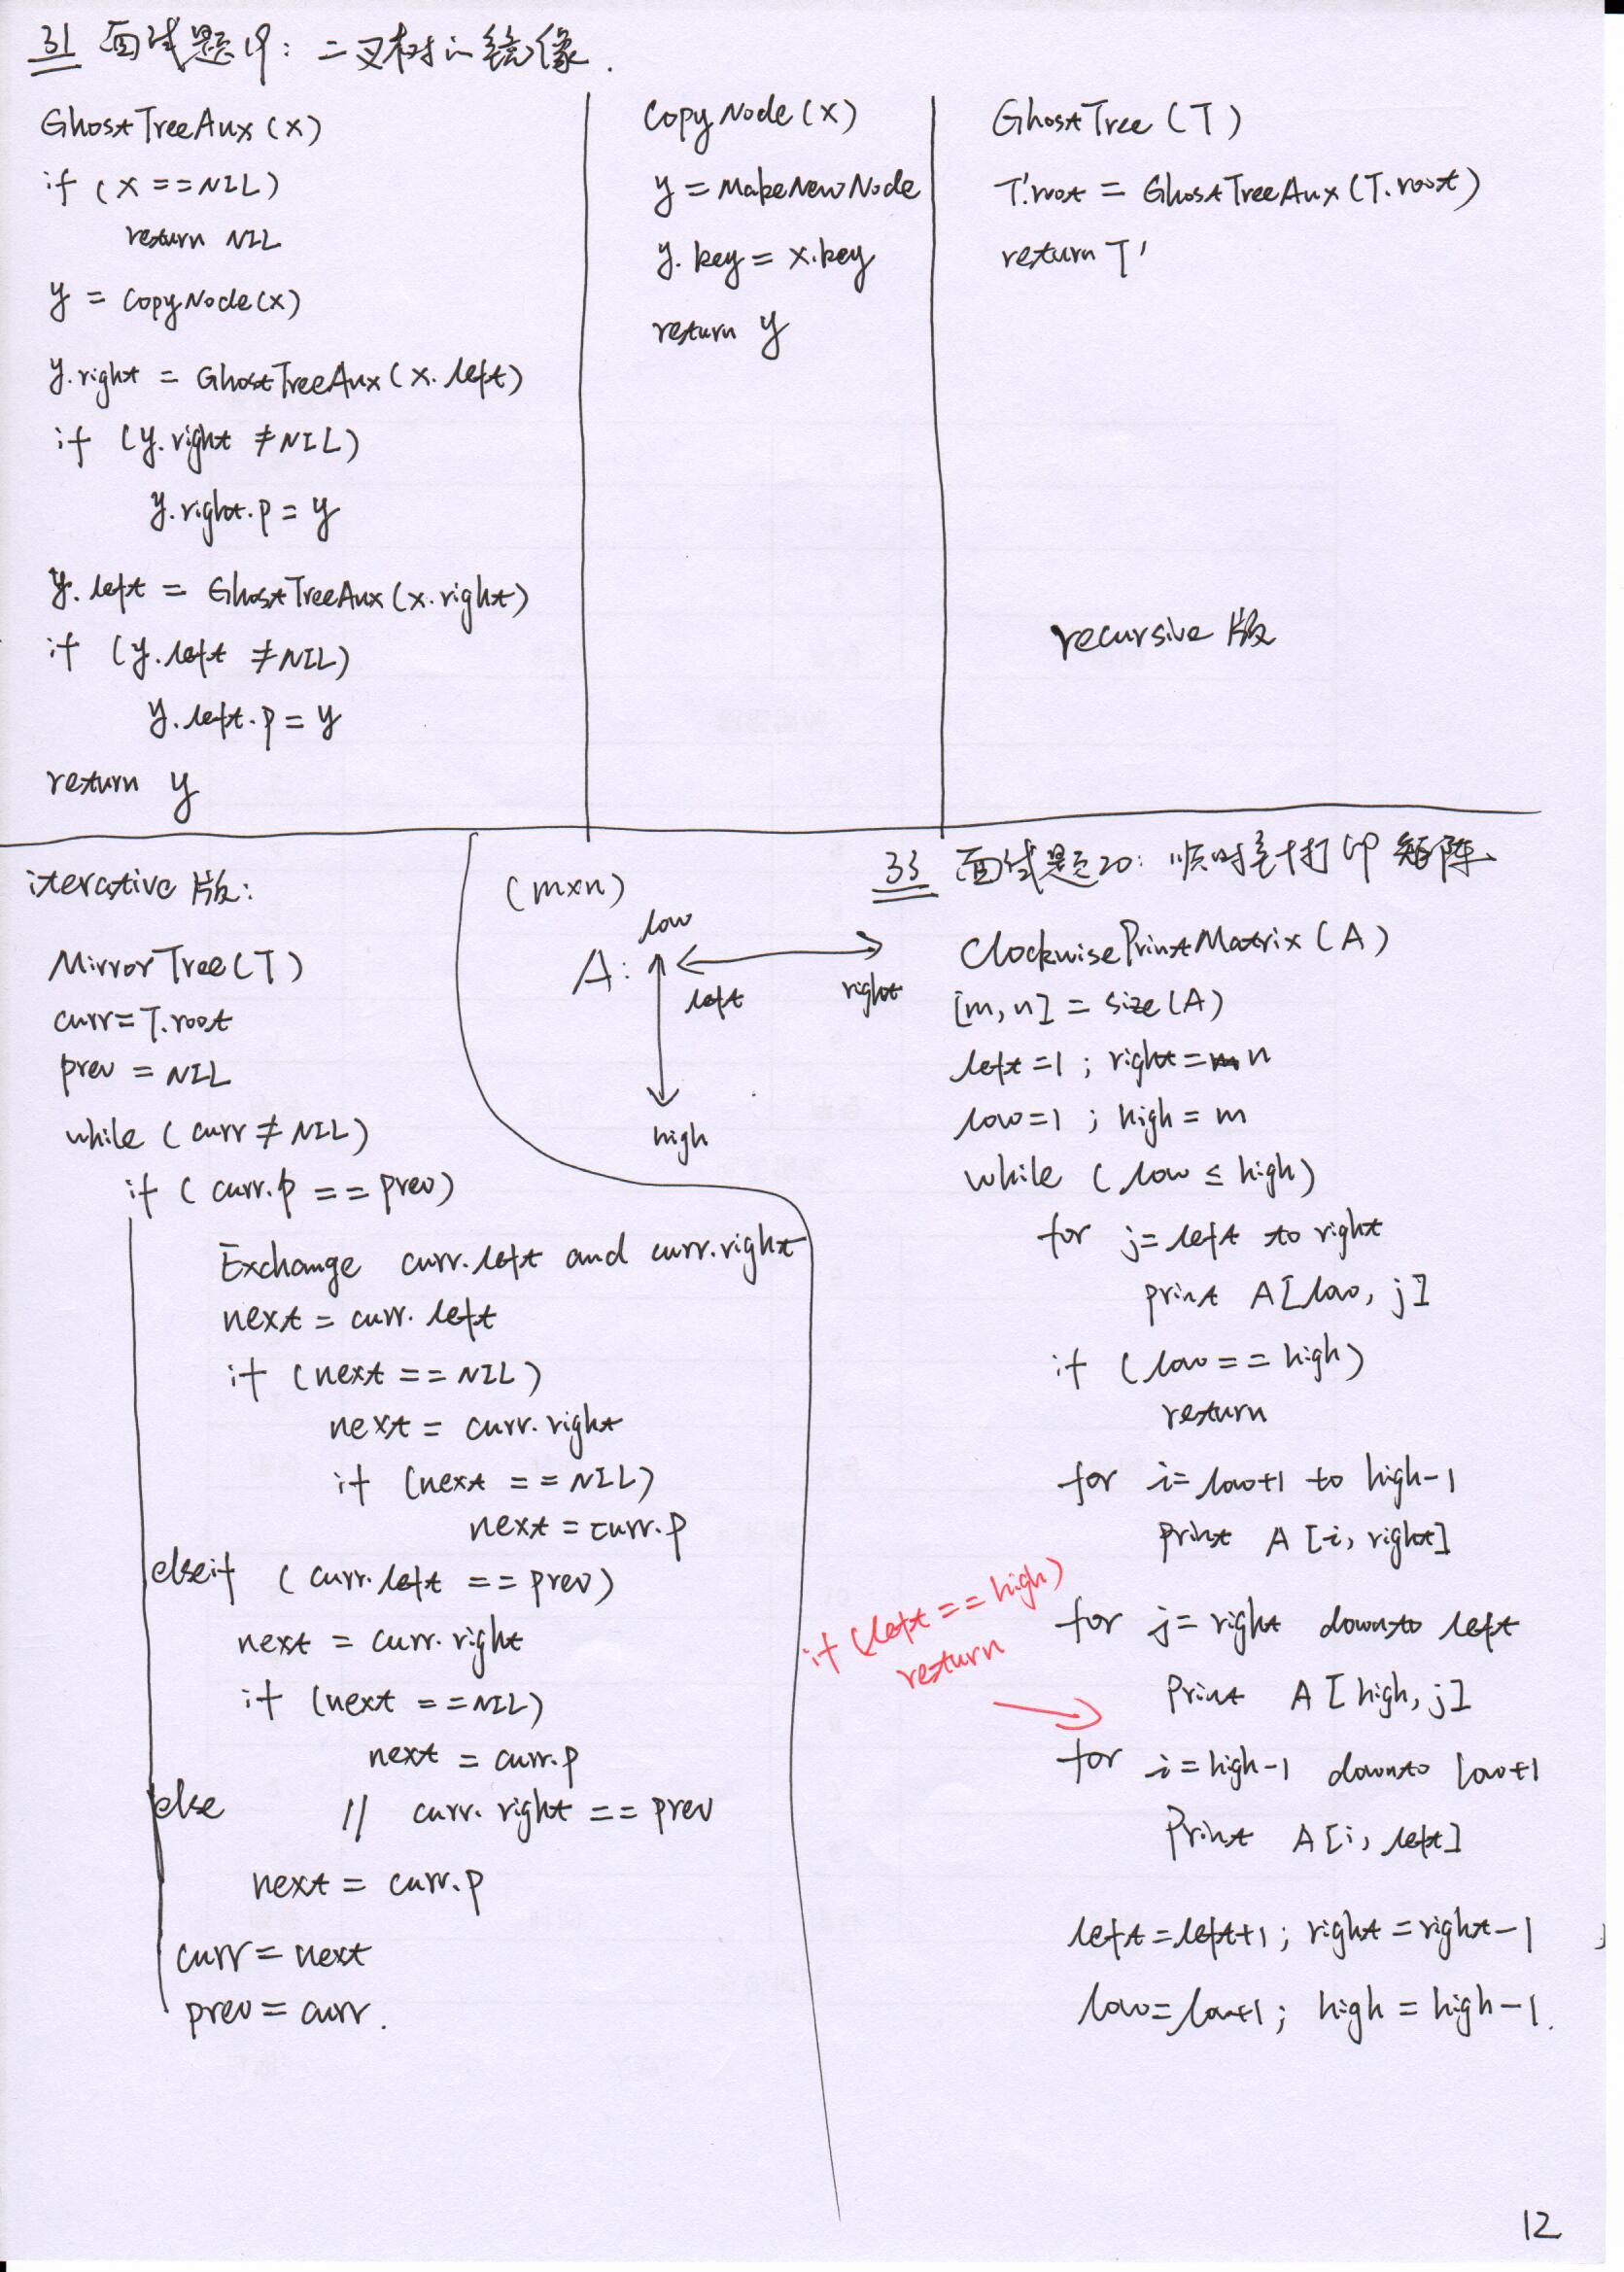 31 面试题19: 二叉树的镜像.
GhostTreeAux(x)
if (x == NIL)
return NIL
y = CopyNode(x)
y.right = GhostTreeAux(x.left)
if (y.right ≠ NIL)
y.right.p = y
y.left = GhostTreeAux(x.right)
if (y.left ≠ NIL)
y.left.p = y
return y
CopyNode(x)
y = MakeNewNode
y.key = x.key
return y
GhostTree(T)
T'.root = GhostTreeAux(T.root)
return T'
recursive 版
iterative 版:
MirrorTree(T)
curr = T.root
prev = NIL
while (curr ≠ NIL)
if (curr.p == prev)
Exchange curr.left and curr.right
next = curr.left
if (next == NIL)
next = curr.right
if (next == NIL)
next = curr.p
elseif (curr.left == prev)
next = curr.right
if (next == NIL)
next = curr.p
else // curr.right == prev
next = curr.p
curr = next
prev = curr.
(m×n)
A:
low
left
right
high
33 面试题20: 顺时针打印矩阵
ClockwisePrintMatrix(A)
[m,n] = size(A)
left=1; right=n
low=1; high=m
while (low ≤ high)
for j=left to right
print A[low, j]
if (low == high)
return
for i=low+1 to high-1
print A[i, right]
for j=right downto left
Print A[high, j]
if (left == high)
return
for i=high-1 downto low+1
Print A[i, left]
left=left+1; right=right-1
low=low+1; high=high-1.
12